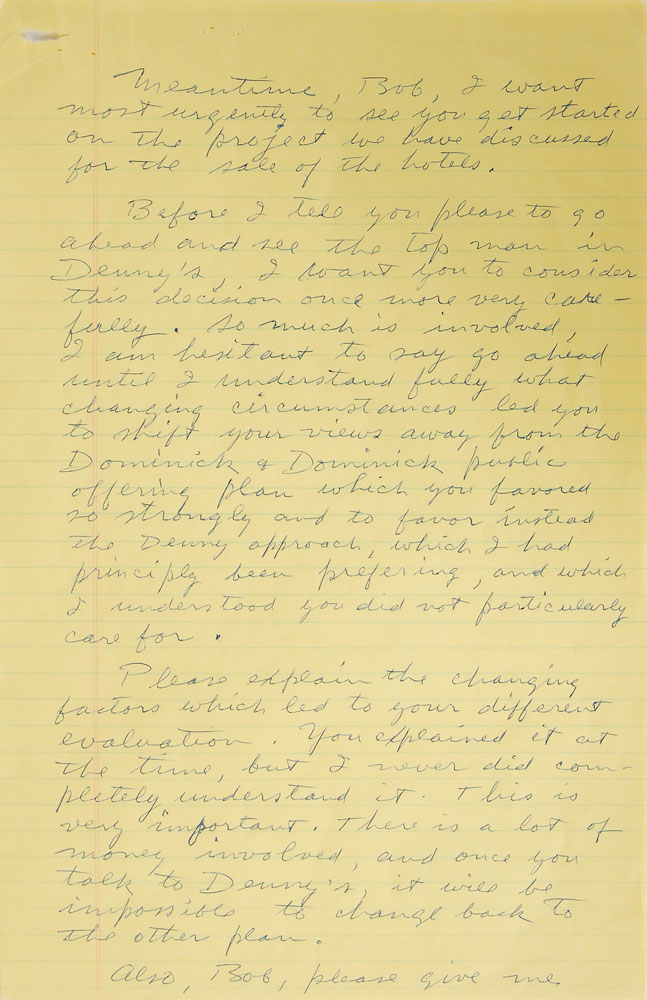 Meantime, Bob, I want
most urgently to see you get started
on the project we have discussed
for the sale of the hotels.
Before I tell you please to go
ahead and see the top man in
Denny's, I want you to consider
this decision once more very care-
fully. So much is involved,
I am hesitant to say go ahead
until I understand fully what
changing circumstances led you
to shift your views away from the
Dominick & Dominick public
offering plan which you favored
so strongly and to favor instead
the Denny approach, which I had
principly been prefering, and which
I understood you did not particularly
care for.
Please explain the changing
factors which led to your different
evaluation. You explained it at
the time, but I never did com-
pletely understand it. This is
very important. There is a lot of
money involved, and once you
talk to Denny's, it will be
impossible to change back to
the other plan.
Also, Bob, please give me